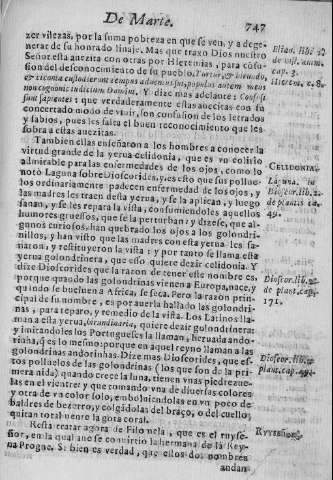 De Marte. 747
zer vilezas, por la suma pobreza en que se ven, y a dege-
nerar de su honrado linaje. Mas que traxo Dios nuestro
Señor esta auezita con otras por Hieremias, para cōfu-
sion del desconocimiento de su pueblo. Turtur, & hirundo,
& ciconia custodierunt tempus aduentus sui, populus autem meus
non cognouit iudicium Domini. Y dize mas adelante: Confusi
sunt sapientes: que verdaderamente estas auezitas con su
concertado modo de viuir, son confusion de los letrados
y sabios, pues les falta el buen reconocimiento que les
sobra a estas auezitas.
Tambien ellas enseñaron a los hombres a conocer la
virtud grande de la yerua celidonia, que es vn colirio
admirable para las enfermedades de los ojos, como lo
notó Laguna sobre Dioscorides, y es esto que sus polluelos
ordinariamente padecen enfermedad de los ojos, y
las madres les traen desta yerua, y se la aplican, y luego
sanan, y se les repara la vista, consumiendoles aquellos
humores gruessos, que se la perturban: y dizese, que al-
gunos curiosos, han quebrado los ojos a los golondri-
nillos, y han visto que las madres con esta yerua les sa-
naron, y restituyeron la vista: y por tanto se llama esta
yerua golondrinera, que esso quiere dezir celidonia. Y
dize Dioscorides que la razon de tener este nombre es,
porque quando las golondrinas vienen a Europa, nace, y
quando se bueluen a Africa, se seca. Pero la razon prin-
cipal de su nombre, es por auerla hallado las golondri-
nas, para reparo, y remedio de la vista. Los Latinos lla-
man a esta yerua, hirundinaria, quiere dezir golondrinera:
y imitandoles los Portugueses la llaman, herua da ando-
rinha, q̄ es lo mesmo: porque en aquel reyno llaman a las
golondrinas andorinhas. Dize mas Dioscorides, que es-
tos polluelos de las golondrinas (los que son de la pri-
mera nidada) quando crece la luna, tienen vnas piedrezue-
las en el vientre: y que tomando vna de diuersos colores,
y otra de vn color solo, emboluiendolas en vn poco de
baldres de bezerro, y colgadolas del braço, o del cuello,
quitan totalmente la gota coral.
Resta tratar agora de Filomela, que es el ruyse-
ñor, en la qual se conuirtio la hermana de la Rey-
na Progne. Si bien es verdad, que estos dos nombres
andan
Hierem. c. 8.
CELIDONIA.
Laguna, in
Dioscor. lib. 2.
de plantis ca.
Dioscor. lib.
de plant. cap.
171.
Dioscor. lib.
plant. cap.
RVYSEÑOR.